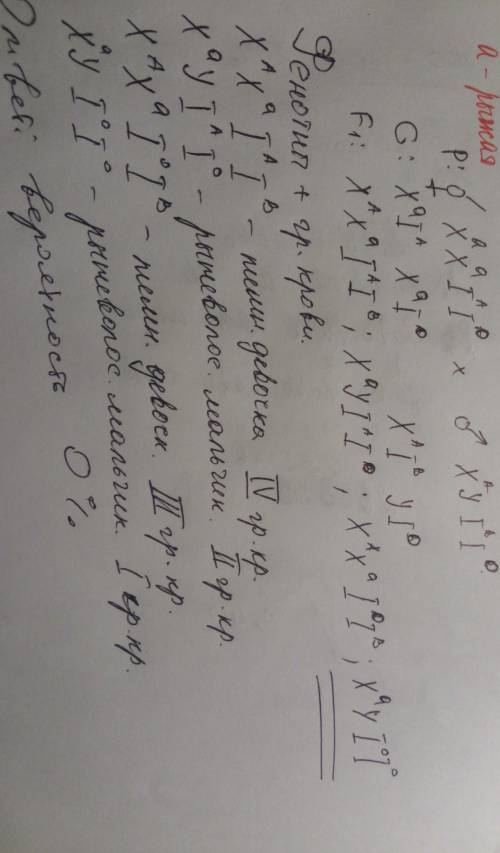 a - рыжая
P: ♀ XᵃXᵃIᴬI⁰ × ♂ XᴬYIᴮI⁰.
G: XᵃIᴬ XᵃI⁰ XᴬIᴮ YI⁰
F₁: XᴬXᵃIᴬIᴮ; XᵃYIᴬI⁰; XᴬXᵃI⁰Iᴮ; XᵃYI⁰I⁰
Фенотип + гр. крови.
XᴬXᵃIᴬIᴮ - темн. девочка IV гр. кр.
XᵃYIᴬI⁰ - рыжеволос. мальчик. II гр. кр.
XᴬXᵃI⁰Iᴮ - темн. девочк. III гр. кр.
XᵃYI⁰I⁰ - рыжеволос. мальчик. I гр. кр.
Ответ: вероятность 0%